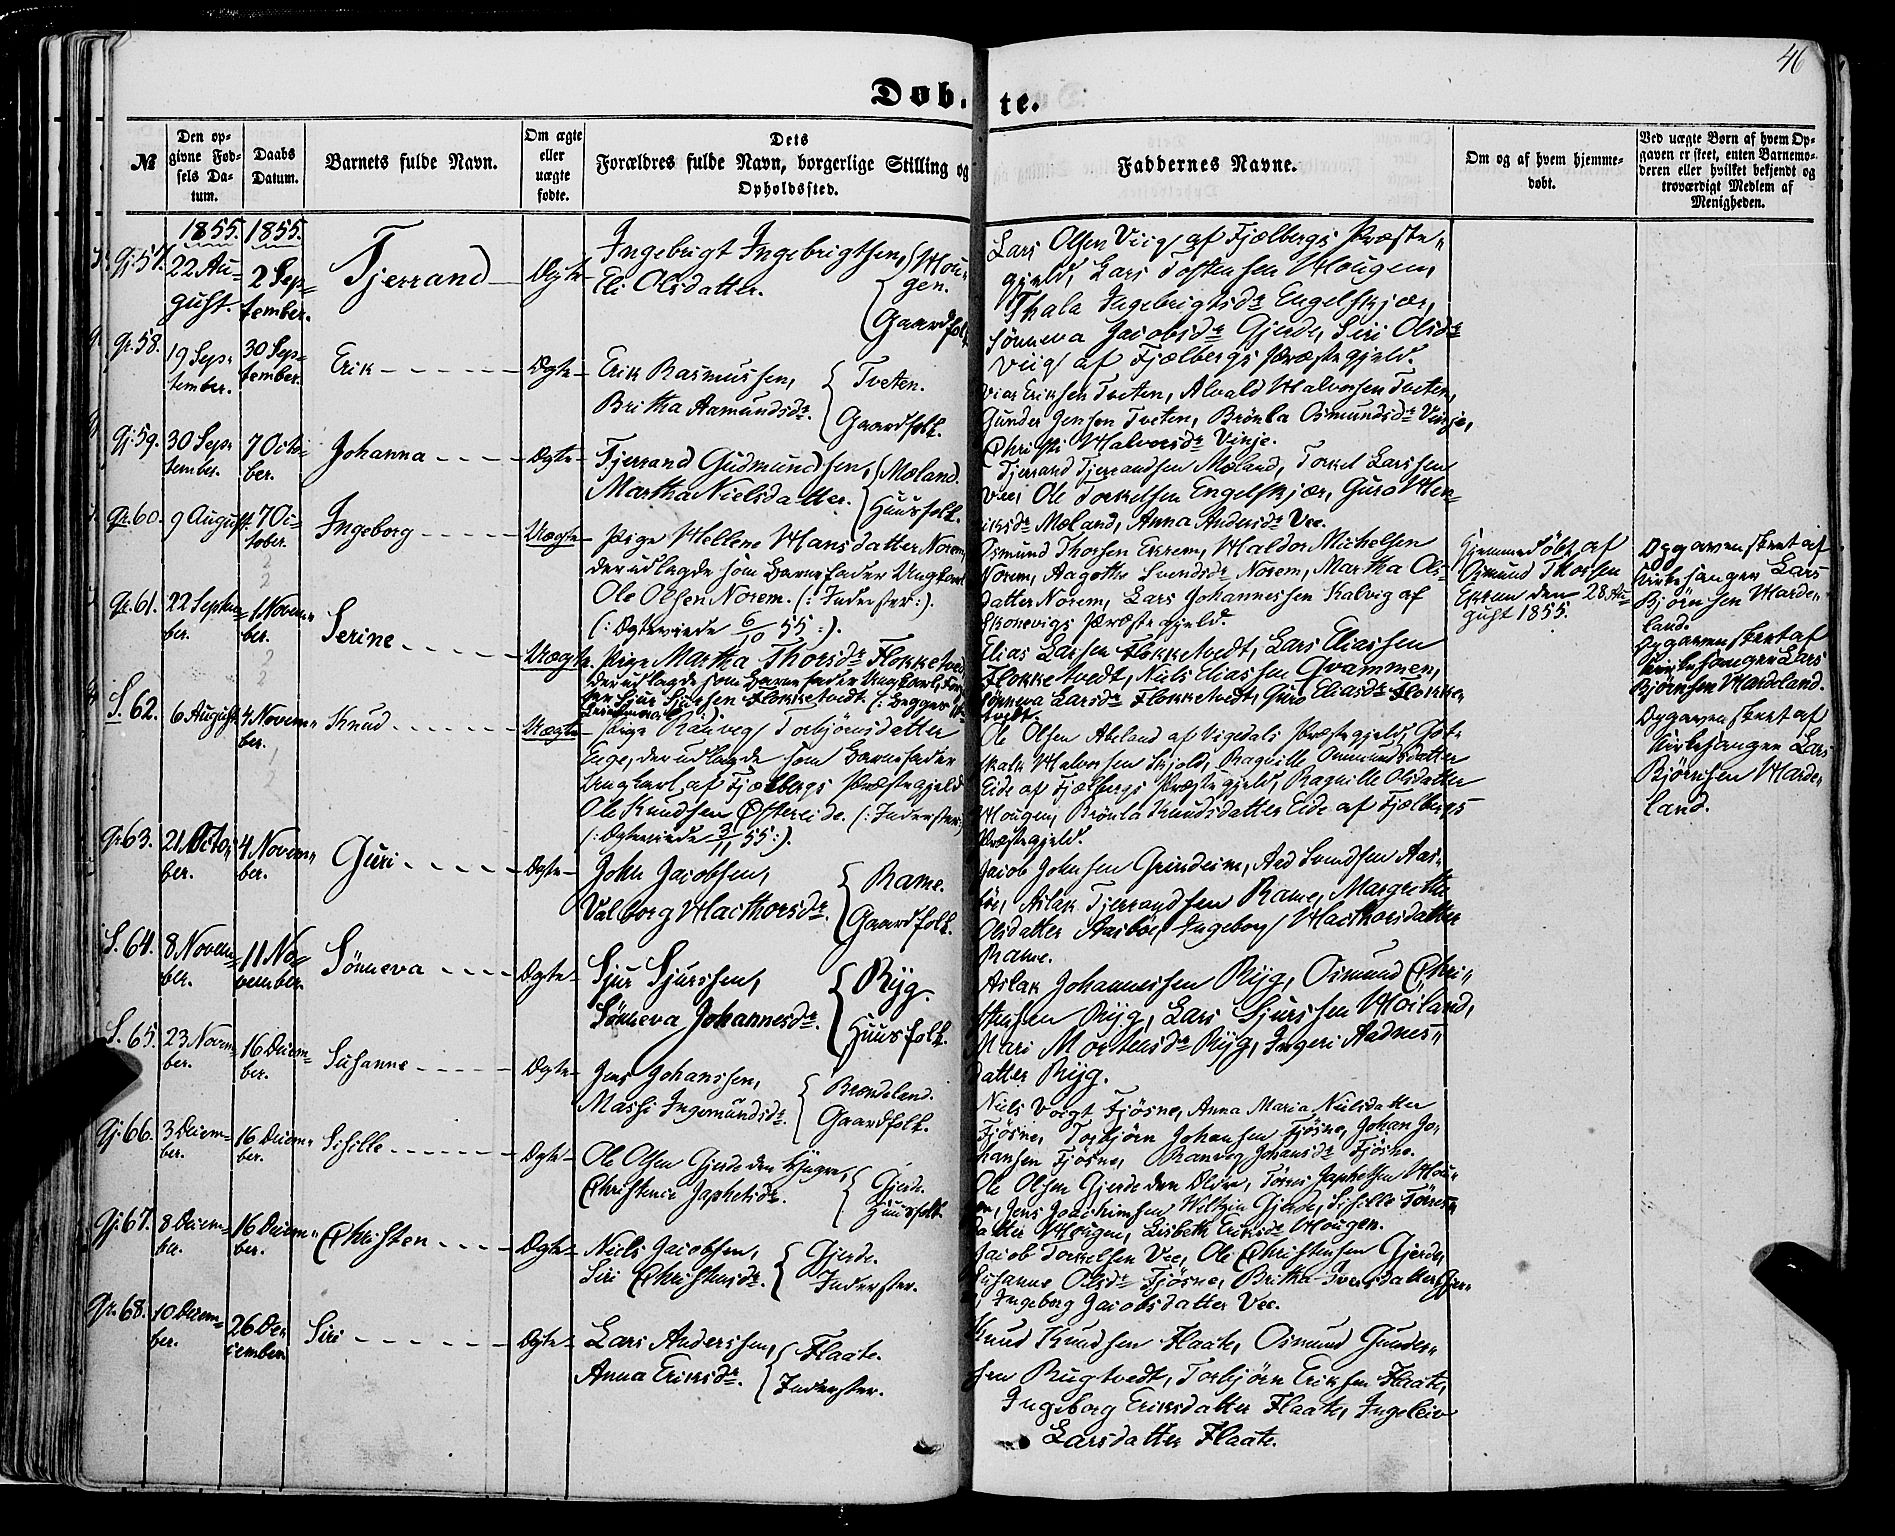 46
Døb- te.
№
Den op-
givne Fød-
sels Da-
tum.
Daabs
Datum.
Barnets fulde Navn.
Om ægte
eller
uægte
fødte.
Dets
Forældres fulde Navn, borgerlige Stilling og
Opholdssted.
Faddernes Navne.
Om og af hvem hjemme-
døbt.
Ved uægte Børn af hvem Op-
gaven er skeet, enten Barnemo-
deren eller hvilket bekjendt og
troværdigt Medlem af
Menigheden.
1855. 1855.
Gj. 57.
22 Au-
gust.
2 Sep-
tember.
Tjerrand
Ægte
Ingebrigt Ingebrigtsen,
Eli Olsdatter.
Hou-
gen.
Gaardfolk
Lars Olsen Viig af Fjælbergs Præste-
gjeld, Lars Tostensen Hougen,
Thala Ingebrigtsdr Engelskjær,
Sønneva Jacobsdr Gjerde, Siri Olsdr
Viig af Fjælbergs Præstegjeld.
Gr. 58.
19 Sep-
tember.
30 Sep-
tember.
Erik
Ægte
Erik Rasmussen,
Britha Aamundsdr.
Tveten.
Gaardfolk.
Eriksen Tveten, Alvald Halvorsen Tveten,
Gunder Jensen Tveten, Brønla Osmundsdr Vinje,
Christi Halvorsdr Vinje.
Gj. 59.
30 Sep-
tember.
7 Octo-
ber.
Johanna
Ægte
Tjerrand Gudmundsen,
Martha Nielsdatter.
Mæland.
Huusfolk.
Tjerrand Tjerrandsen Mæland, Torkel Larssen
Vee, Ole Torkelsen Engelskjær, Guro Hen-
riksdr Mæland, Anna Andersdr Vee.
Gr. 60.
9 August.
7 Oc-
tober.
Ingeborg
Uægte
Pige Hellene Hansdatter Norem,
der udlagde som Barnefader Ungkarl
Ole Olsen Norem. (: Inderster:).
(: Ægteviede 6/10 55:).
Osmund Thorsen Ekrem, Haldor Michelsen
Norem, Aagothe Svendsdr Norem, Martha Ols-
datter Norem, Lars Johannessen Kalvig af
Skonevigs Præstegjeld.
Hjemmedøbt af
Osmund Thorsen
Ekrem den 28 Au-
gust 1855.
Opgaven skeet af
Kirkesanger Lars
Bjørnsen Harde-
land.
Gr. 61.
22 Septem-
ber.
1 Novem-
ber.
Serine
Uægte.
Pige Martha Thorsdr Flokketvedt
der udlagde som Barnefader Ungkarl
Sjur Sjursen Flokketvedt (: Begge
Elias Larsen Flokketvedt, Lars Eliassen
Flokketvedt, Niels Eliassen Qvammen,
Sønneva Larsdr Flokketvedt, Guro Eliasdr Flokke-
tvedt.
Opgaven skeet af
Kirkesanger Lars
Bjørnsen Hardeland.
S. 62.
6 August.
4 Novem-
ber.
Knud
Uægte
Pige Ranveg Torbjørnsdatter
Enge, der udlagde som Barnefader
Ungkarl af Fjælbergs Præstegjeld
Ole Knudsen Østereide. (: Inderster:)
(: Ægteviede 3/11 55:).
Ole Olsen Abeland af Vigedals Præstegjeld, Got-
skalk Halvorsen Skjold, Ragnille Ommundsdatter
Eide af Fjælbergs Præstegjeld, Ragnille Olsdatter
Hougen, Brønla Knudsdatter Eide af Fjælbergs
Præstegjeld.
Opgaven skeet af
Kirkesanger Lars
Bjørnsen Harde-
land.
Gr. 63.
21 Octo-
ber.
4 Novem-
ber.
Guri
Ægte
John Jacobsen,
Valborg Hacthorsdr.
Rame.
Gaardfolk.
Jacob Johnsen Grindeim, Aad Svendsen Aas-
bøe, Aslak Tjerrandsen Rame, Margrethe
Olsdatter Aasbøe, Ingeborg Hacthorsdatter
Rame.
S. 64.
8 Novem-
ber.
11 No-
vember.
Sønneva
Ægte
Sjur Sjurssen,
Sønneva Johannesdr.
Ryg.
Huusfolk.
Aslak Johannessen Ryg, Osmund Chri-
stensen Ryg, Lars Sjurssen Høiland,
Mari Mortensdr Ryg, Ingeri Aadnes-
datter Ryg.
S. 65.
23 Novem-
ber.
16 Decem-
ber.
Susanne
Ægte
Jens Johanssen,
Massi Ingemundsdr.
Brendeland.
Gaardfolk.
Niels Voigt Fjøsne, Anna Maria Nielsdatter
Fjøsne, Torbjørn Johansen Fjøsne, Johan Jo-
hansen Fjøsne, Ranveg Johansdr Fjøsne.
Gj. 66.
3 Decem-
ber.
16 Decem-
ber.
Sisille
Ægte
Ole Olsen Gjerde den Yngre,
Christence Japhetsdr.
Gjerde.
Huusfolk
Ole Olsen Gjerde den Ældre, Tørres Japhetsen Hou-
gen, Jens Joachimsen Weltzin Gjerde, Sisille Tørres-
datter Hougen, Lisbeth Eriksdr Hougen.
Gj. 67.
8 Decem-
ber.
16 Decem-
ber.
Christen
Ægte
Niels Jacobsen,
Siri Christensdr.
Gjerde.
Inderster.
Jacob Torkelsen Vee, Ole Christensen Gjerde,
Susanne Olsdr Fjøsne, Britha Iversdatter Gjer-
Ingeborg Jacobsdatter Vee.
Gr. 68.
10 Decem-
ber.
26 De-
cember.
Siri
Ægte
Lars Anderssen,
Anna Eriksdr.
Flaate.
Inderster.
Knud Knudsen Flaate, Osmund Gunder-
sen Rugtvedt, Torbjørn Eriksen Flaate,
Ingeborg Eriksdatter Flaate, Ingeleiv
Larsdatter Flaate.